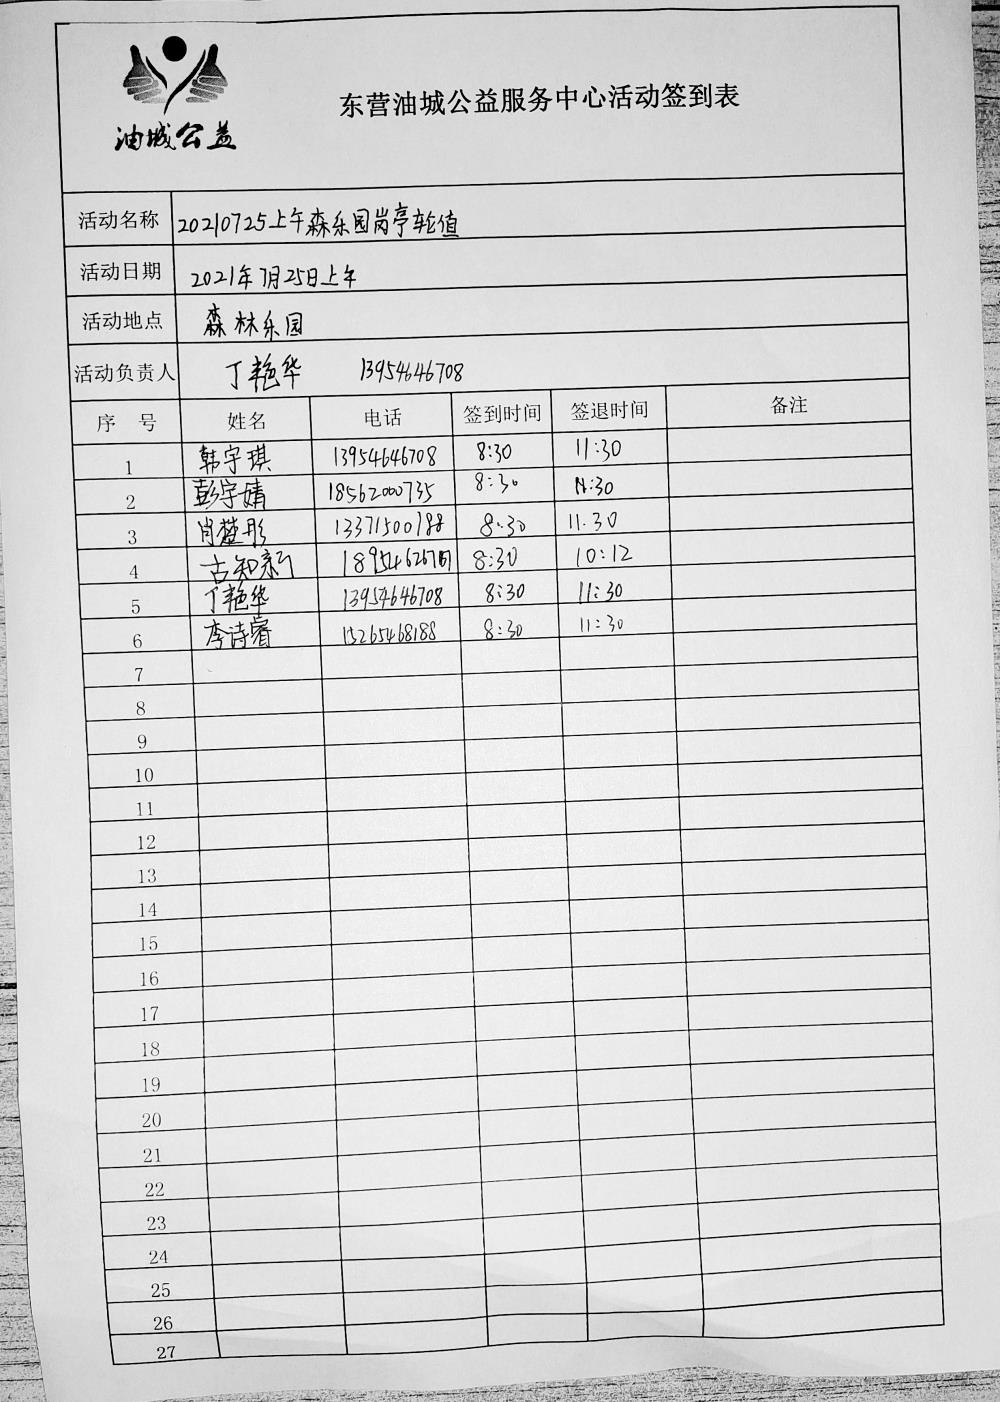 油城公益
东营油城公益服务中心活动签到表
活动名称 20210725上午森乐园岗亭轮值
活动日期 2021年7月25日上午
活动地点 森林乐园
活动负责人 丁艳华 13954646708
序 号 姓名 电话 签到时间 签退时间 备注
1 韩宇琪 13954646708 8:30 11:30
2 彭宇婧 18562000735 8:30 11:30
3 肖楚彤 13371500188 8:30 11.30
4 古知新 8:30 10:12
5 丁艳华 13954646708 8:30 11:30
6 李诗睿 15265468188 8:30 11:30
7
8
9
10
11
12
13
14
15
16
17
18
19
20
21
22
23
24
25
26
27